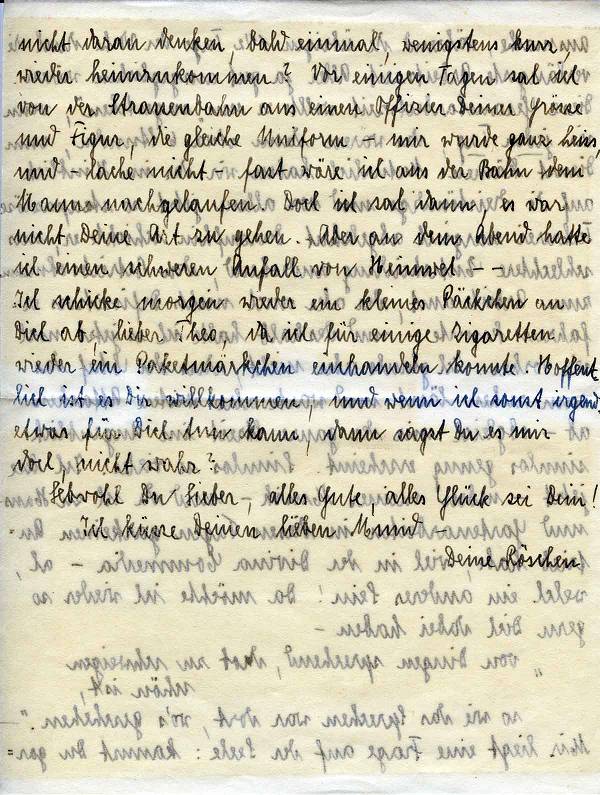 nicht daran denken, bald einmal, wenigstens kurz,
wieder heimzukommen? Vor einigen Tagen sah ich
von der Strassenbahn aus einen Offizier Deiner Grösse
und Figur, die gleiche Uniform – mir wurde ganz heiss,
und – lache nicht – fast wäre ich aus der Bahn dem
Manne nachgelaufen. Doch ich sah dann, es war
nicht Deine Art zu gehen. Aber an dem Abend hatte
ich einen schweren Anfall von Heimweh – –
Ich schicke morgen wieder ein kleines Päckchen an
Dich ab, lieber Theo, da ich für einige Zigaretten
wieder ein Paketmärkchen einhandeln konnte. Hoffent-
lich ist es Dir willkommen, und wenn ich sonst irgend
etwas für Dich tun kann, dann sagst Du es mir
doch, nicht wahr?
Lebwohl Du Lieber –, alles Gute, alles Glück sei Dein!
Ich küsse Deinen lieben Mund –
Deine Röschen